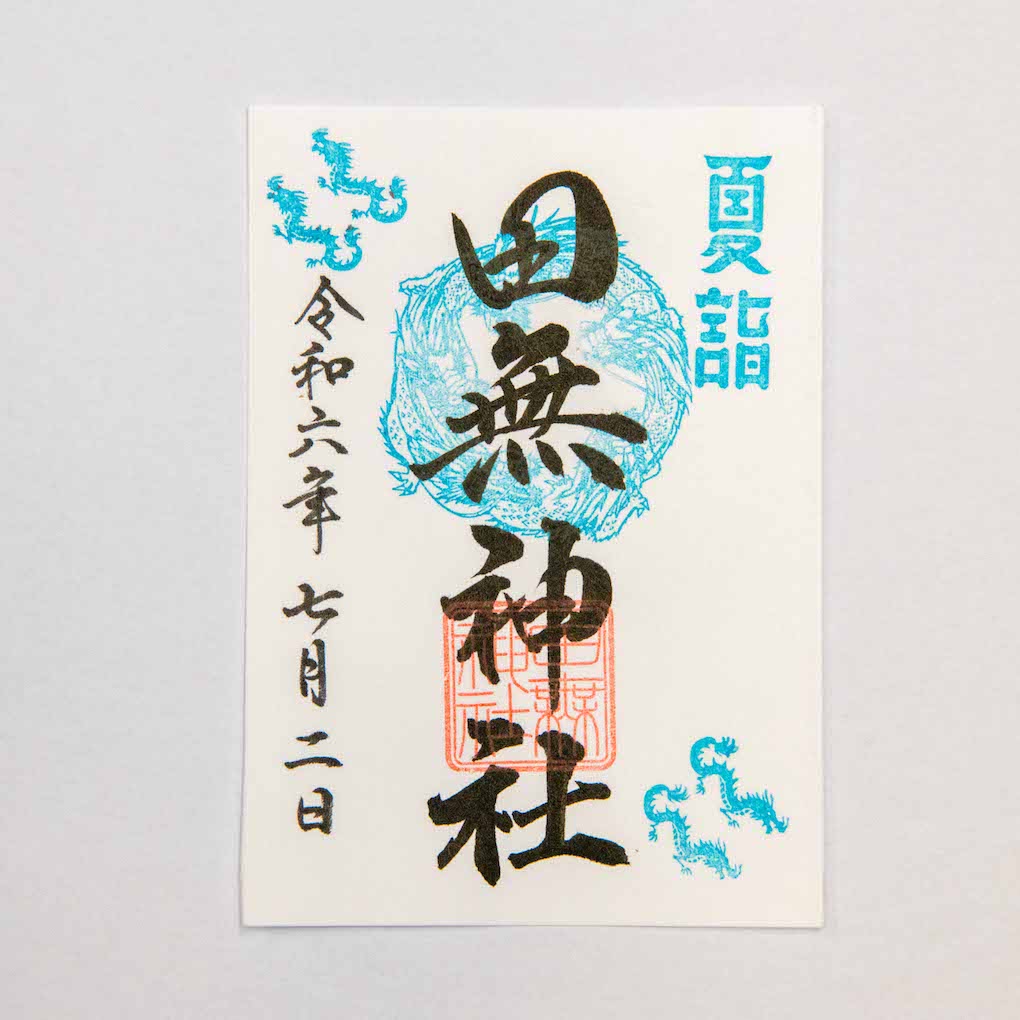 夏詣
田無神社
田無神社
令和六年七月二日